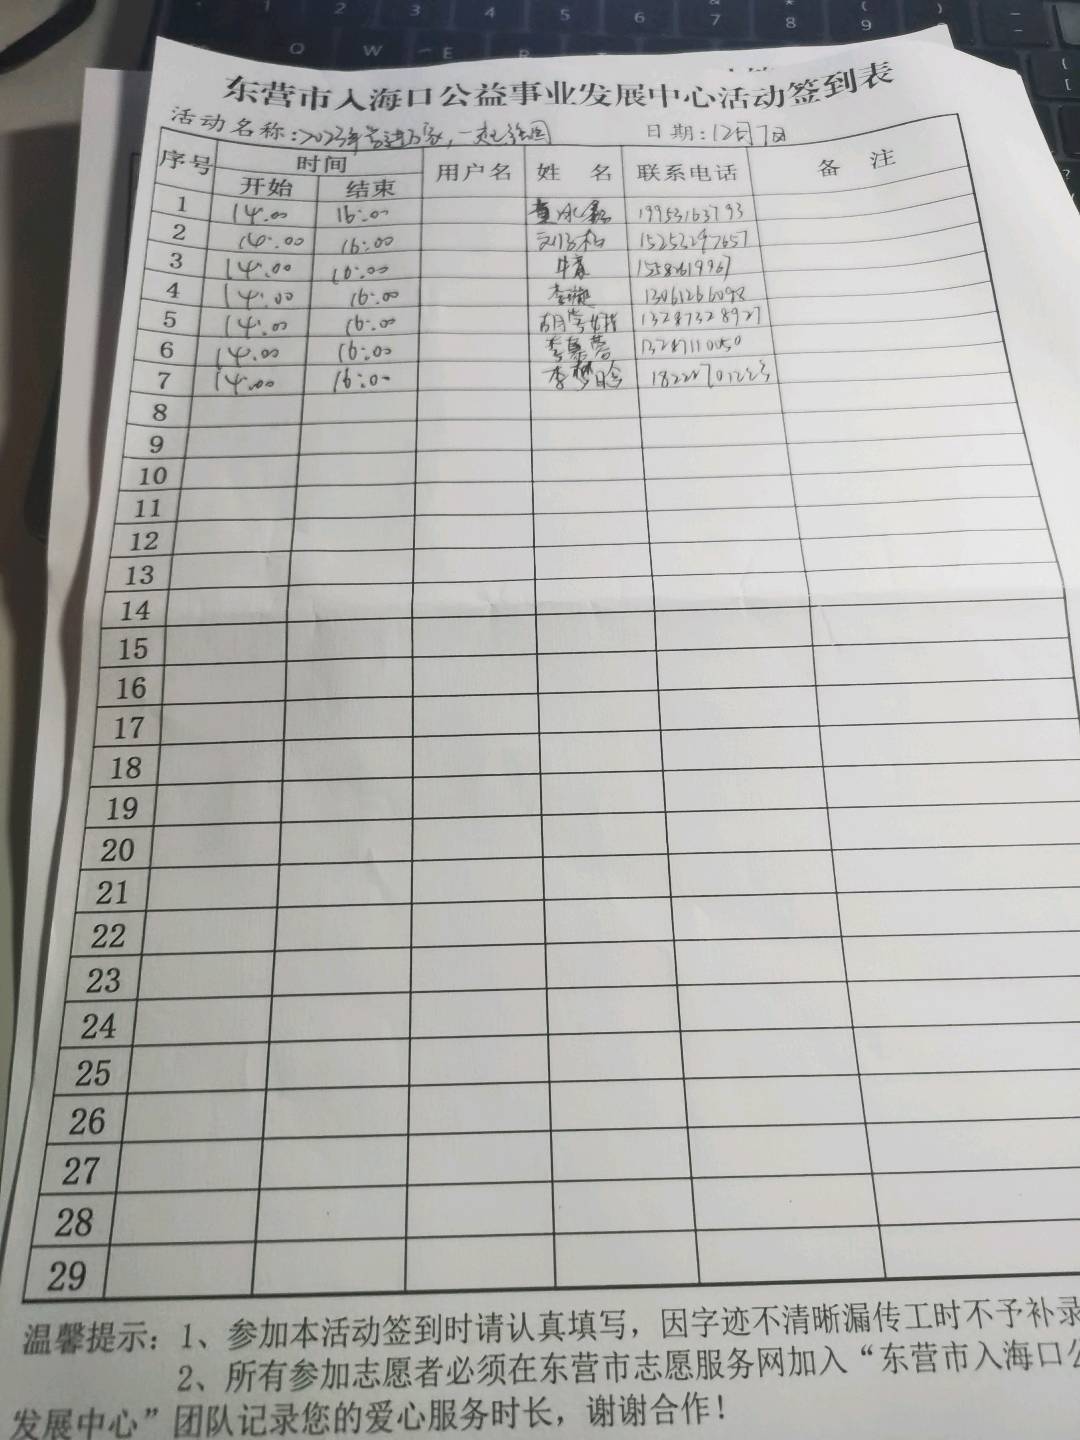 东营市入海口公益事业发展中心活动签到表
活动名称:2023年 日期:12月7日
序号 时间 用户名 姓 名 联系电话 备 注
开始 结束
1 14:00 16:00 19953163793
2 14:00 16:00 15253297657
3 14:00 16:00 牛森
4 14:00 16:00 13061266098
5 14:00 16:00 13287328927
6 14:00 16:00
7 14:00 16:00 李梦晗
8
9
10
11
12
13
14
15
16
17
18
19
20
21
22
23
24
25
26
27
28
29
温馨提示:1、参加本活动签到时请认真填写,因字迹不清晰漏传工时不予补录
2、所有参加志愿者必须在东营市志愿服务网加入“东营市入海口公
发展中心”团队记录您的爱心服务时长,谢谢合作!